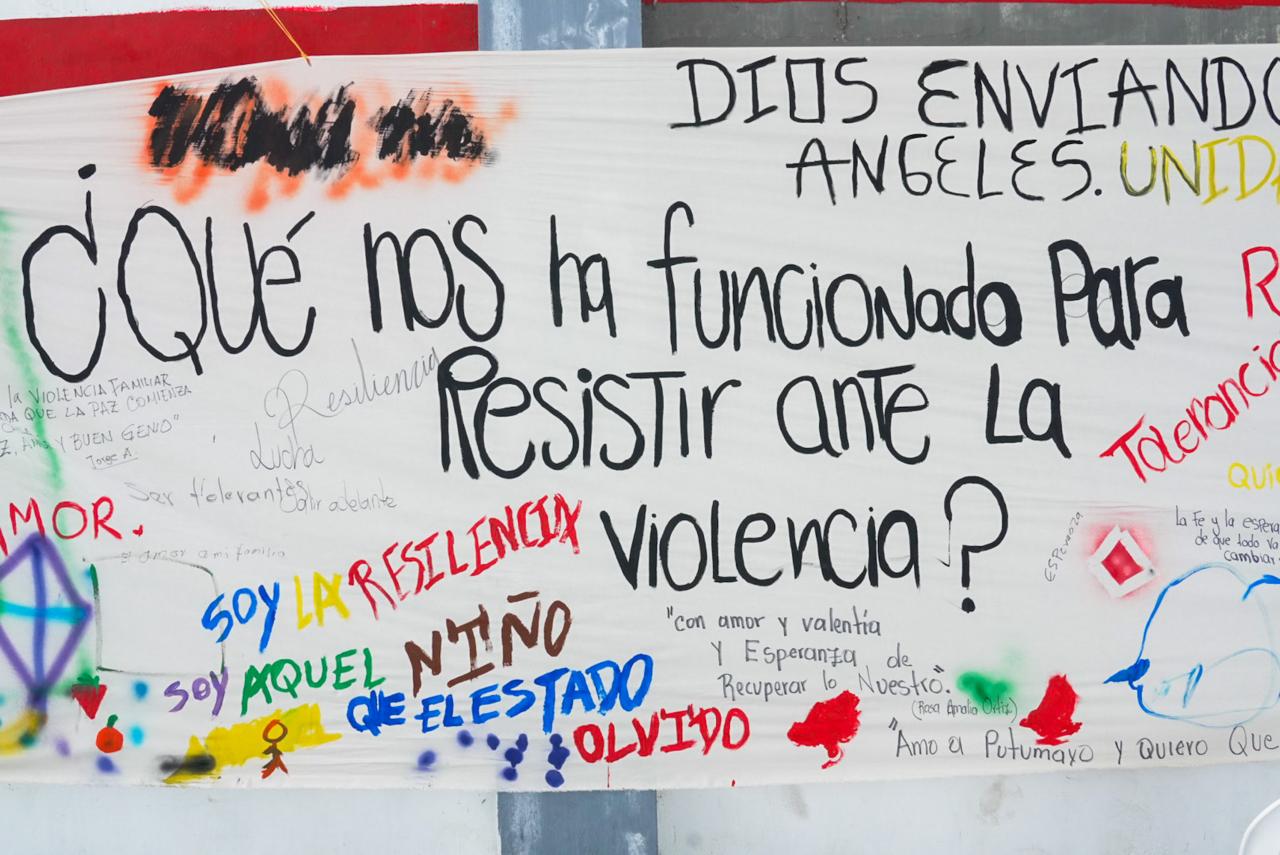 DIOS ENVIANDO
ANGELES. UNIDA
¿QUé nos ha funcionado Para
Resistir ante La
violencia?
R
Tolerancia
la VIOLENCIA FAMILIAR
QUE LA PAZ COMIENZA
Y BUEN GENIO"
Jorge A.
Resiliencia
Lucha
Ser tolerantes
Salir adelante
AMOR.
amor a mi familia
SOY LA RESILENCIA
SOY AQUEL NIÑO
QUE EL ESTADO
OLVIDO
"con amor y valentía
Y Esperanza de
Recuperar lo Nuestro".
(Rosa Amalia Ortiz)
"Amo el Putumayo y Quiero Que
ESPERANZA
La Fe y la espera
de que todo va
cambiar